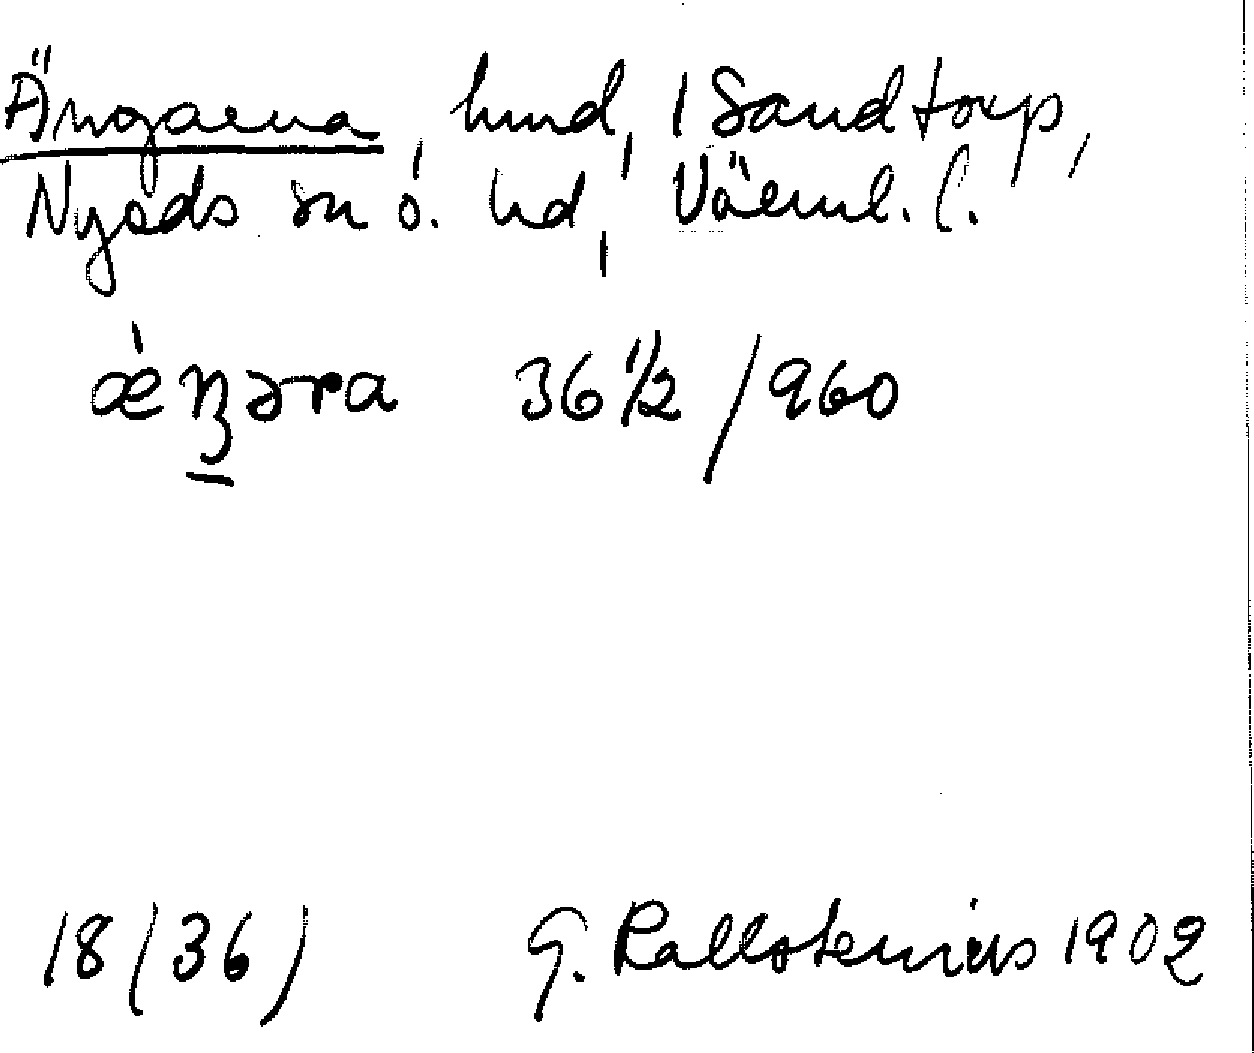 Ängarna, hmd, 1 Sandtorp,
Nyeds sn ö. hd, Värml. l.
ǽŋəra 36 1/2 / 960
18 (36) G. Kallstenius 1902